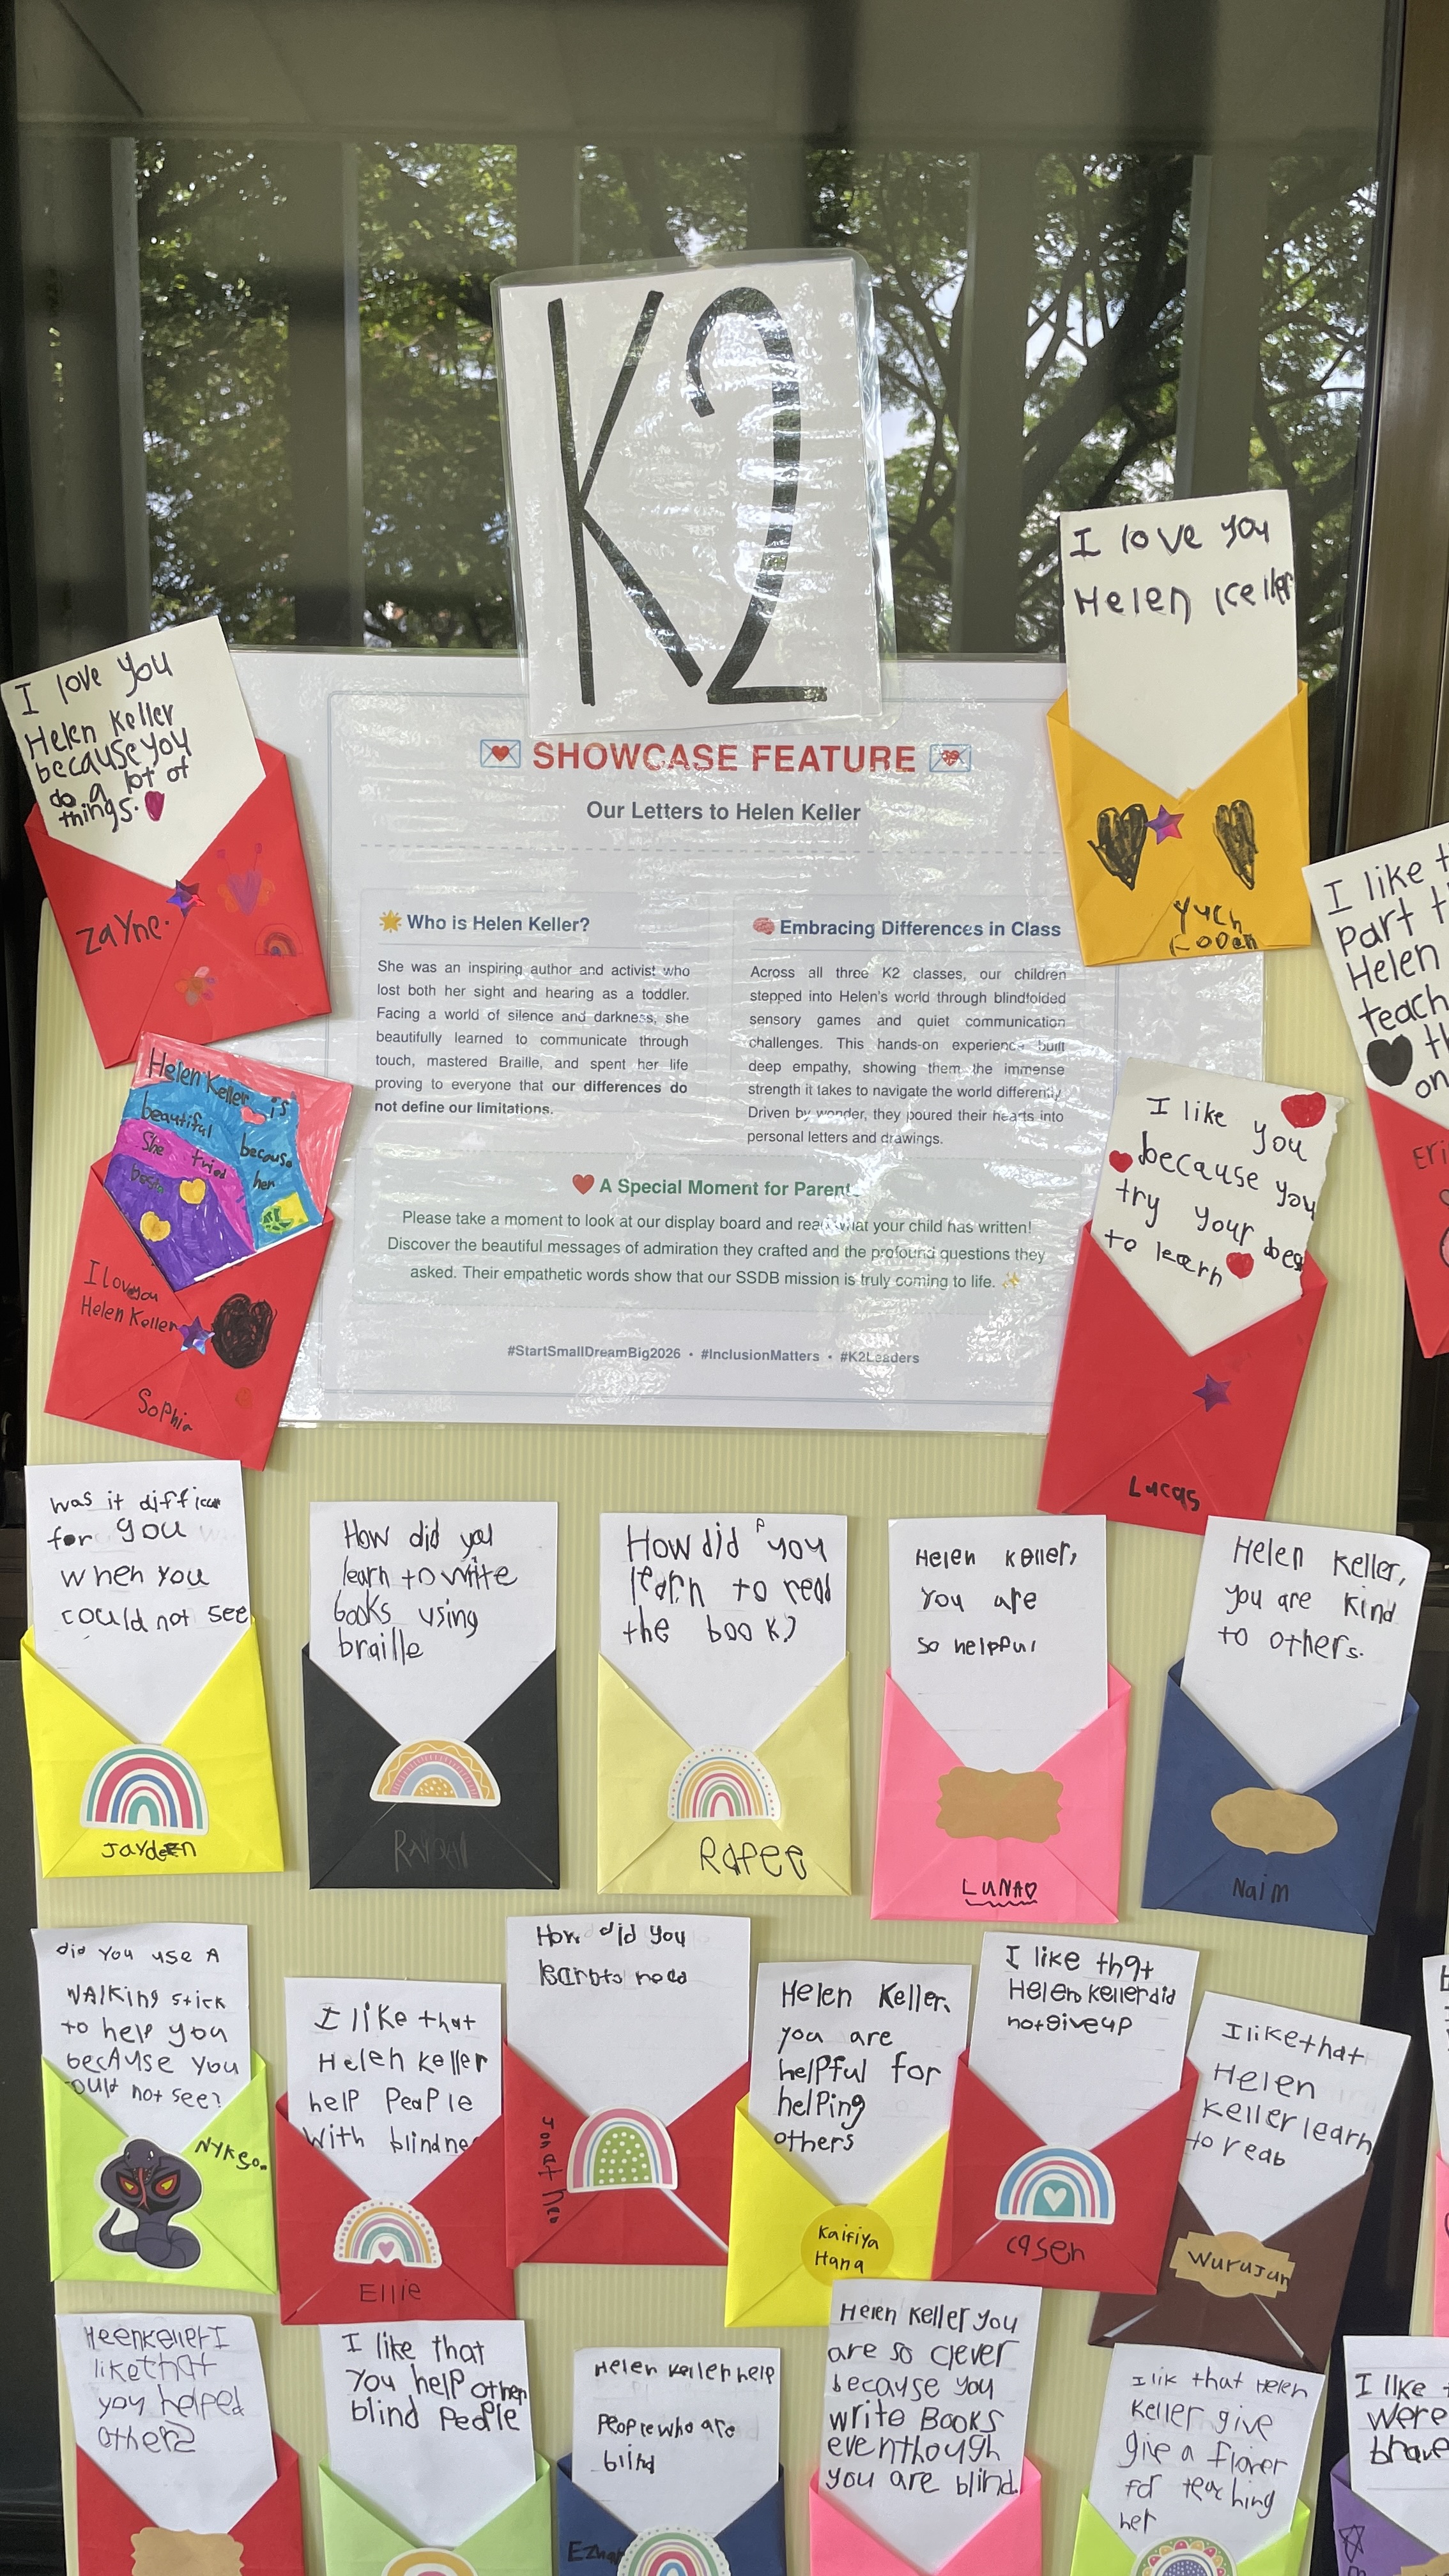 K2
I love you
Helen Keller
I love you
Helen Keller
because you
do a lot of
things.
Zayne.
SHOWCASE FEATURE
Our Letters to Helen Keller
Who is Helen Keller?
She was an inspiring author and activist who
lost both her sight and hearing as a toddler.
Facing a world of silence and darkness, she
beautifully learned to communicate through
touch, mastered Braille, and spent her life
proving to everyone that our differences do
not define our limitations.
Embracing Differences in Class
Across all three K2 classes, our children
stepped into Helen's world through blindfolded
sensory games and quiet communication
challenges. This hands-on experience built
deep empathy, showing them the immense
strength it takes to navigate the world differently.
Driven by wonder, they poured their hearts into
personal letters and drawings.
A Special Moment for Parents
Please take a moment to look at our display board and read what your child has written!
Discover the beautiful messages of admiration they crafted and the profound questions they
asked. Their empathetic words show that our SSDB mission is truly coming to life.
#StartSmallDreamBig2026 • #InclusionMatters • #K2Leaders
Yuch
I like
part
Helen
teach
on
Eri
Helen Keller is
beautiful because
She tried her
best
I love you
Helen Keller
Sophia
I like you
because you
try your bes
to learn
Lucas
was it
for you
when you
could not see
Jayden
How did you
learn to write
books using
braille
How did you
learn to read
the book?
Rafee
Helen Keller,
you are
so helpful
LUNA
Helen Keller,
you are kind
to others.
Naim
did you use A
WALKing stick
to help you
becAuse you
ould not see?
Nykson
I like that
Helen Keller
help PeaPle
with blindne
Ellie
How did you
Jonathen
Helen Keller,
you are
helpful for
helping
others
Kaifiya
Hana
I like that
Helen Keller did
not give up
casen
I like that
Helen
Keller learn
to reab
Wurujun
HeenKeller I
like that
you helped
others
I like that
you help other
blind People
Helen Keller help
People who are
blind
Helen Keller you
are so clever
because you
write Books
even though
you are blind.
I lik that Helen
Keller give
give a flower
for teaching
her
I like
were
brave